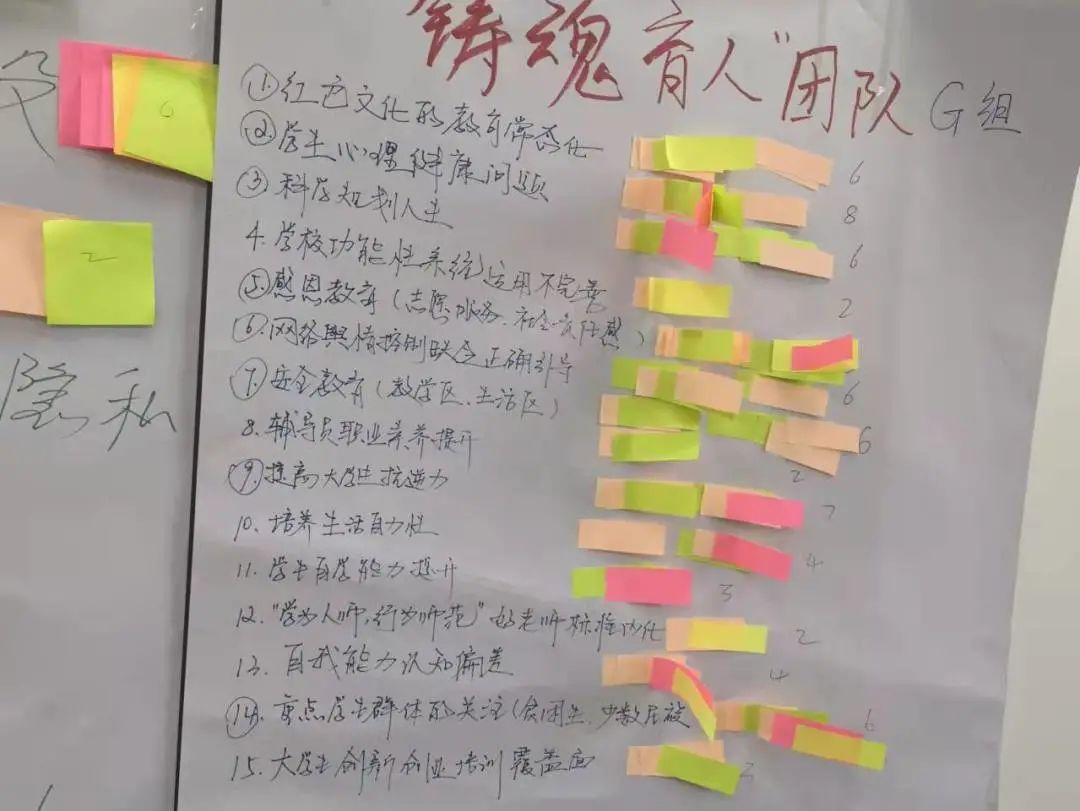 铸魂育人"团队 G组
①红色文化的教育常态化 6
②学生心理健康问题 8
③科学规划人生 6
4.学校功能性系统运用不完善 2
⑤感恩教育(志愿服务、社会责任感)
⑥网络舆情控制联合正确引导 6
⑦安全教育(教学区、生活区) 6
8.辅导员职业素养提升 2
⑨提高大学生抗逆力 7
10.培养生活自力性 4
11.学生自学能力提升 3
12."学为人师,行为师范"好老师标准内化 2
13.自我能力认知偏差 4
⑭.重点学生群体的关注(贫困生、少数民族 6
15.大学生创新创业培训覆盖面 2
6
2
隐私